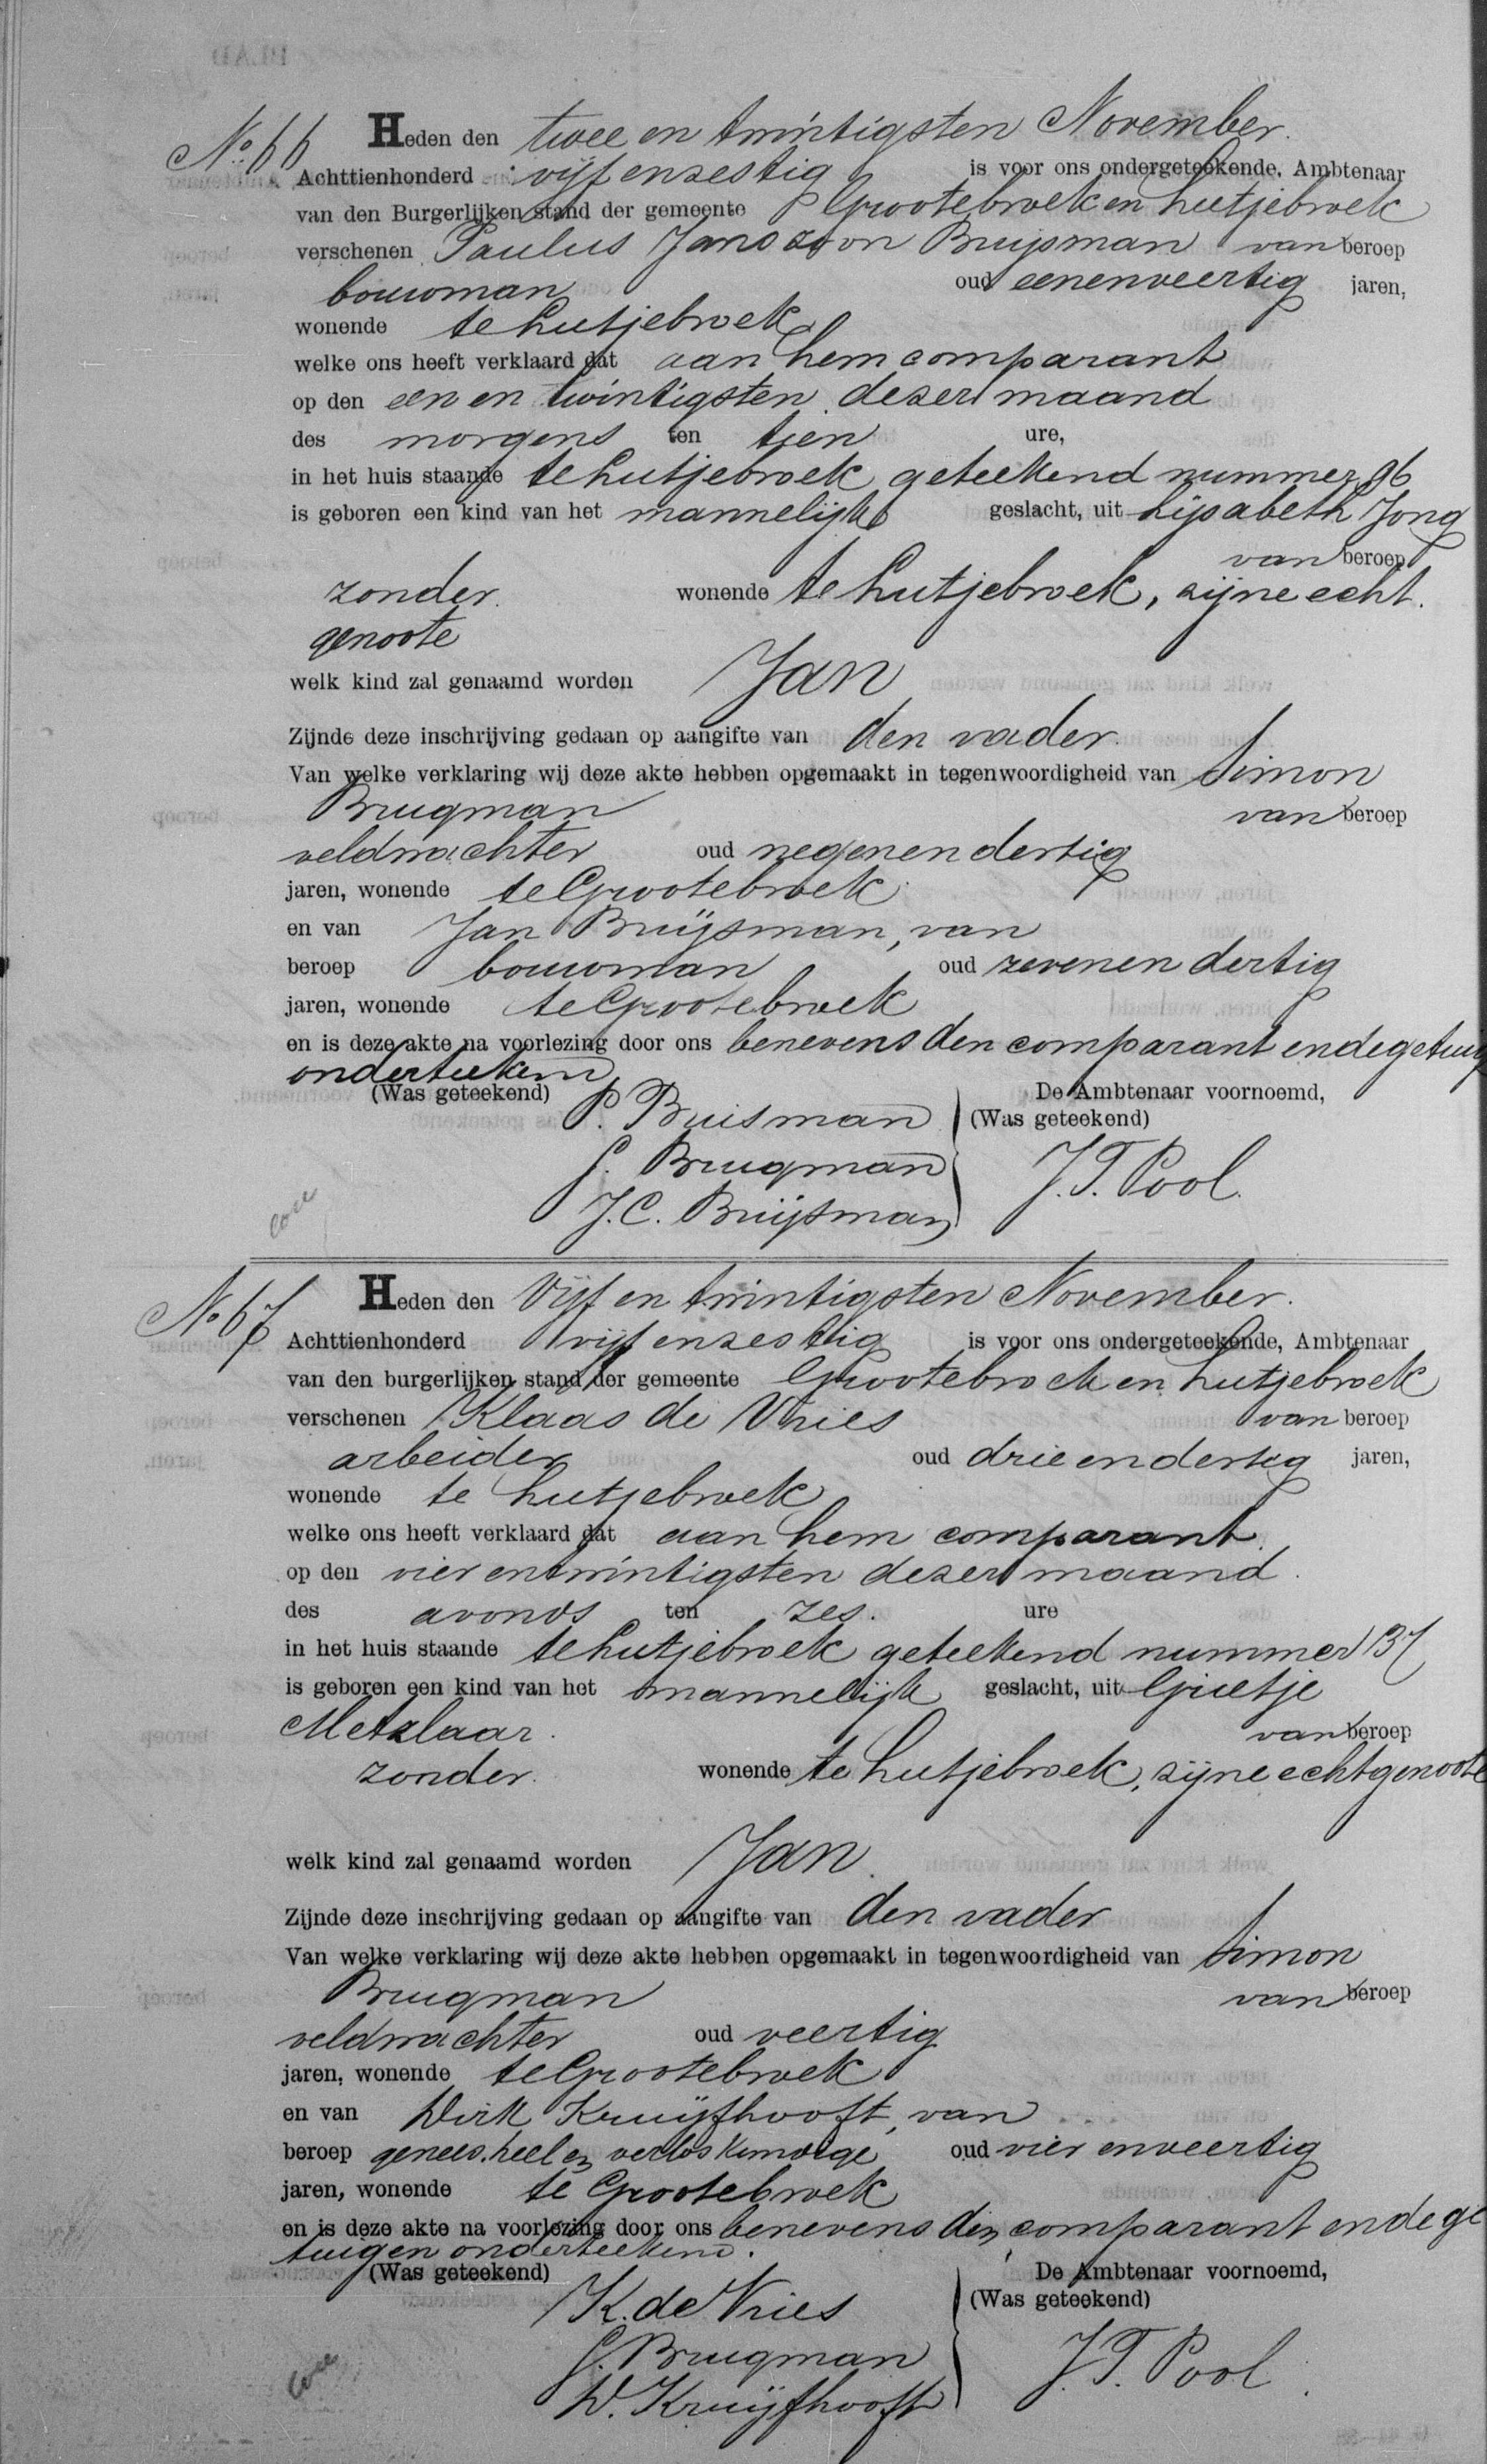 No. 66 Heden den twee en twintigsten November.
Achttienhonderd vijf en zestig is voor ons ondergeteekende, Ambtenaar
van den Burgerlijken stand der gemeente Grootebroek en Lutjebroek
verschenen Paulus Janszoon Buijsman van beroep
bouwman oud eenenveertig jaren,
wonende te Lutjebroek
welke ons heeft verklaard dat aan hem comparant
op den een en twintigsten dezer maand
des morgens ten tien ure,
in het huis staande te Lutjebroek geteekend nummer 96
is geboren een kind van het mannelijk geslacht, uit Lijsabeth Jong
van beroep
zonder. wonende te Lutjebroek, zijne echt.
genoote
welk kind zal genaamd worden Jan
Zijnde deze inschrijving gedaan op aangifte van den vader.
Van welke verklaring wij deze akte hebben opgemaakt in tegenwoordigheid van Simon
Brugman van beroep
veldwachter oud negenendertig
jaren, wonende te Grootebroek
en van Jan Buijsman, van
beroep bouwman oud zevenendertig
jaren, wonende te Grootebroek
en is deze akte na voorlezing door ons benevens den comparant en de getuig
onderteekend
(Was geteekend) De Ambtenaar voornoemd,
P. Buisman (Was geteekend)
S. Brugman J.T. Pool.
J.C. Buijsman
No 67 Heden den Vijf en twintigsten November.
Achttienhonderd vijf en zestig is voor ons ondergeteekende, Ambtenaar
van den burgerlijken stand der gemeente Grootebroek en Lutjebroek
verschenen Klaas de Vries van beroep
arbeider oud drieendertig jaren,
wonende te Lutjebroek
welke ons heeft verklaard dat aan hem comparant.
op den vier en twintigsten dezer maand.
des avonds ten zes. ure
in het huis staande te Lutjebroek geteekend nummer 137
is geboren een kind van het mannelijk geslacht, uit Grietje
Metzlaar. van beroep
zonder. wonende te Lutjebroek, zijne echtgenoote
welk kind zal genaamd worden Jan.
Zijnde deze inschrijving gedaan op aangifte van den vader
Van welke verklaring wij deze akte hebben opgemaakt in tegenwoordigheid van Simon
Brugman van beroep
veldwachter oud veertig
jaren, wonende te Grootebroek
en van Dirk Kruijfhooft, van
beroep genees. heel en verloskundige oud vier en veertig
jaren, wonende te Grootebroek
en is deze akte na voorlezing door ons benevens den comparant en de ge
tuigen onderteekend.
(Was geteekend) De Ambtenaar voornoemd,
K. de Vries (Was geteekend)
S. Brugman J.T. Pool.
D. Kruijfhooft